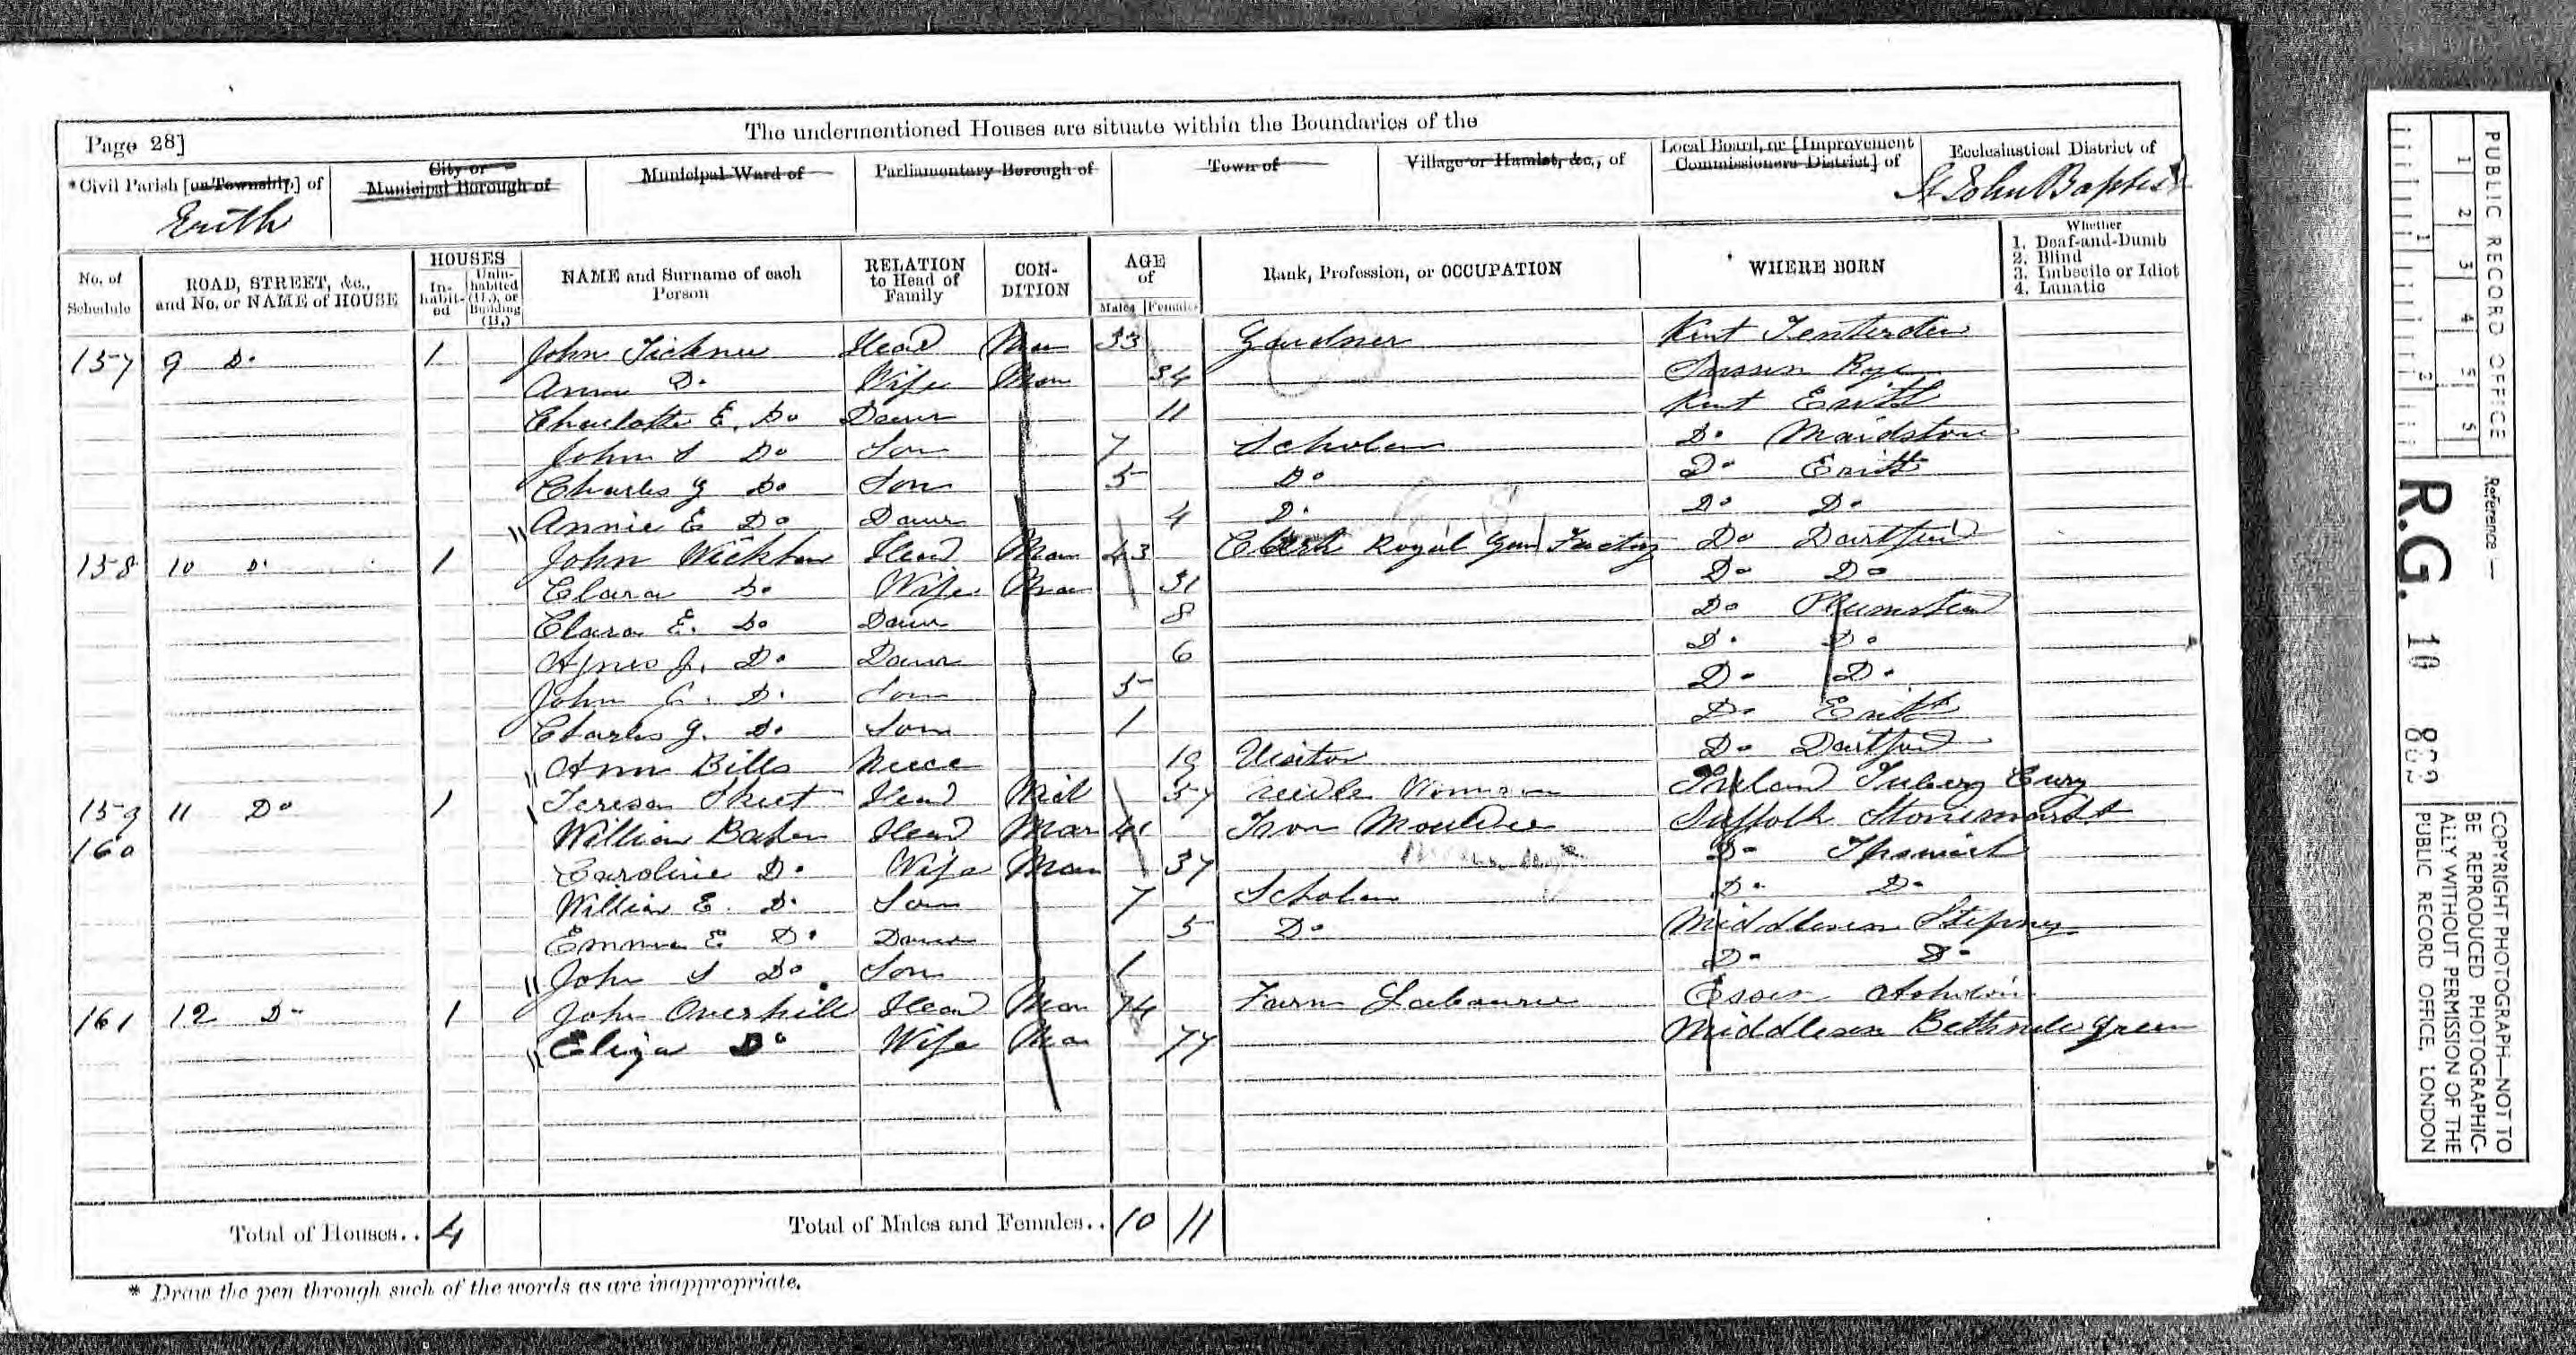 Page 28]
The undermentioned Houses are situate within the Boundaries of the
*Civil Parish [or Township,] of
City or Municipal Borough of
Municipal Ward of
Parliamentary Borough of
Town of
Village or Hamlet, &c., of
Local Board, or [Improvement Commissioners District] of
Ecclesiastical District of
Erith
St John Baptist
No. of Schedule
ROAD, STREET, &c., and No. or NAME of HOUSE
HOUSES
Inhabited
Uninhabited (U.), or Building (B.)
NAME and Surname of each Person
RELATION to Head of Family
CONDITION
AGE of
Males
Females
Rank, Profession, or OCCUPATION
WHERE BORN
Whether
1. Deaf-and-Dumb
2. Blind
3. Imbecile or Idiot
4. Lunatic
157 9 Do 1 John Head Mar 33 Gardner Kent Tenterden
Ann Do Wife Mar 34 Sussex Rye
Charlotte E. Do Daur 11 Kent Erith
John S Do Son 7 Scholar Do Maidstone
Charles G Do Son 5 Do Do Erith
Annie E Do Daur 4 Do Do Do
158 10 Do 1 John Head Mar 43 Clerk Royal Gun Factory Do Dartford
Clara Do Wife Mar 31 Do Do
Clara E. Do Daur 8 Do Plumstead
Agnes J. Do Daur 6 Do Do
John C. Do Son 5 Do Do
Charles G. Do Son 1 Do Erith
Ann Bills Neece 19 Visitor Do Dartford
159 11 Do 1 Teresa Skeet Head Wid 57 Needle Woman Ireland
160 William Baker Head Mar 41 Iron Moulder Suffolk
Caroline Do Wife Mar 37 Do Ipswich
William E. Do Son 7 Scholar Do Do
Emma E Do Daur 5 Do Middlesex Stepney
John S Do Son 1 Do Do
161 12 Do 1 John Overhill Head Mar 74 Farm Labourer Essex
Eliza Do Wife Mar 77 Middlesex Bethnale Green
Total of Houses.. 4
Total of Males and Females.. 10 11
* Draw the pen through such of the words as are inappropriate.
PUBLIC RECORD OFFICE
1 2 3 4 5
1 2
Reference :—
R.G. 10
COPYRIGHT PHOTOGRAPH—NOT TO
BE REPRODUCED PHOTOGRAPHIC-
ALLY WITHOUT PERMISSION OF THE
PUBLIC RECORD OFFICE, LONDON